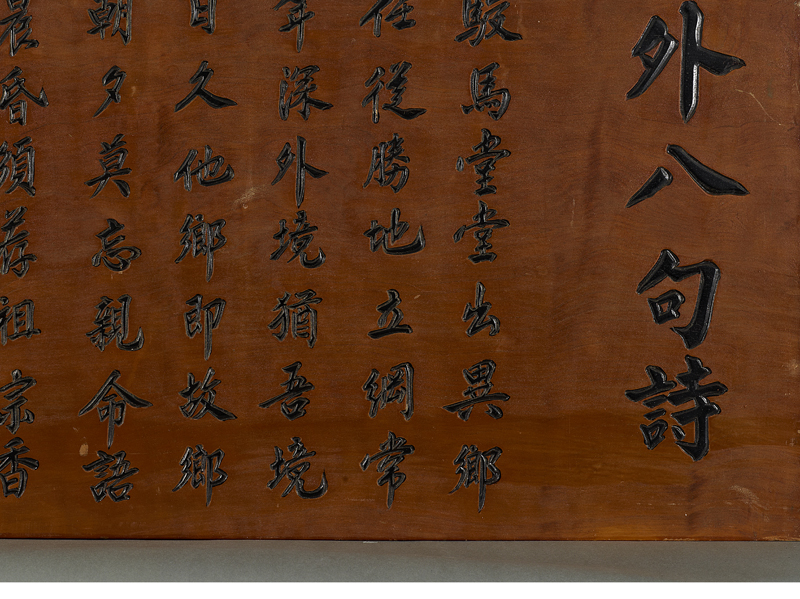 外八句詩
駿馬堂堂出異鄉
任從勝地立綱常
年深外境猶吾境
日久他鄉即故鄉
朝夕莫忘親命語
晨昏須荐祖宗香